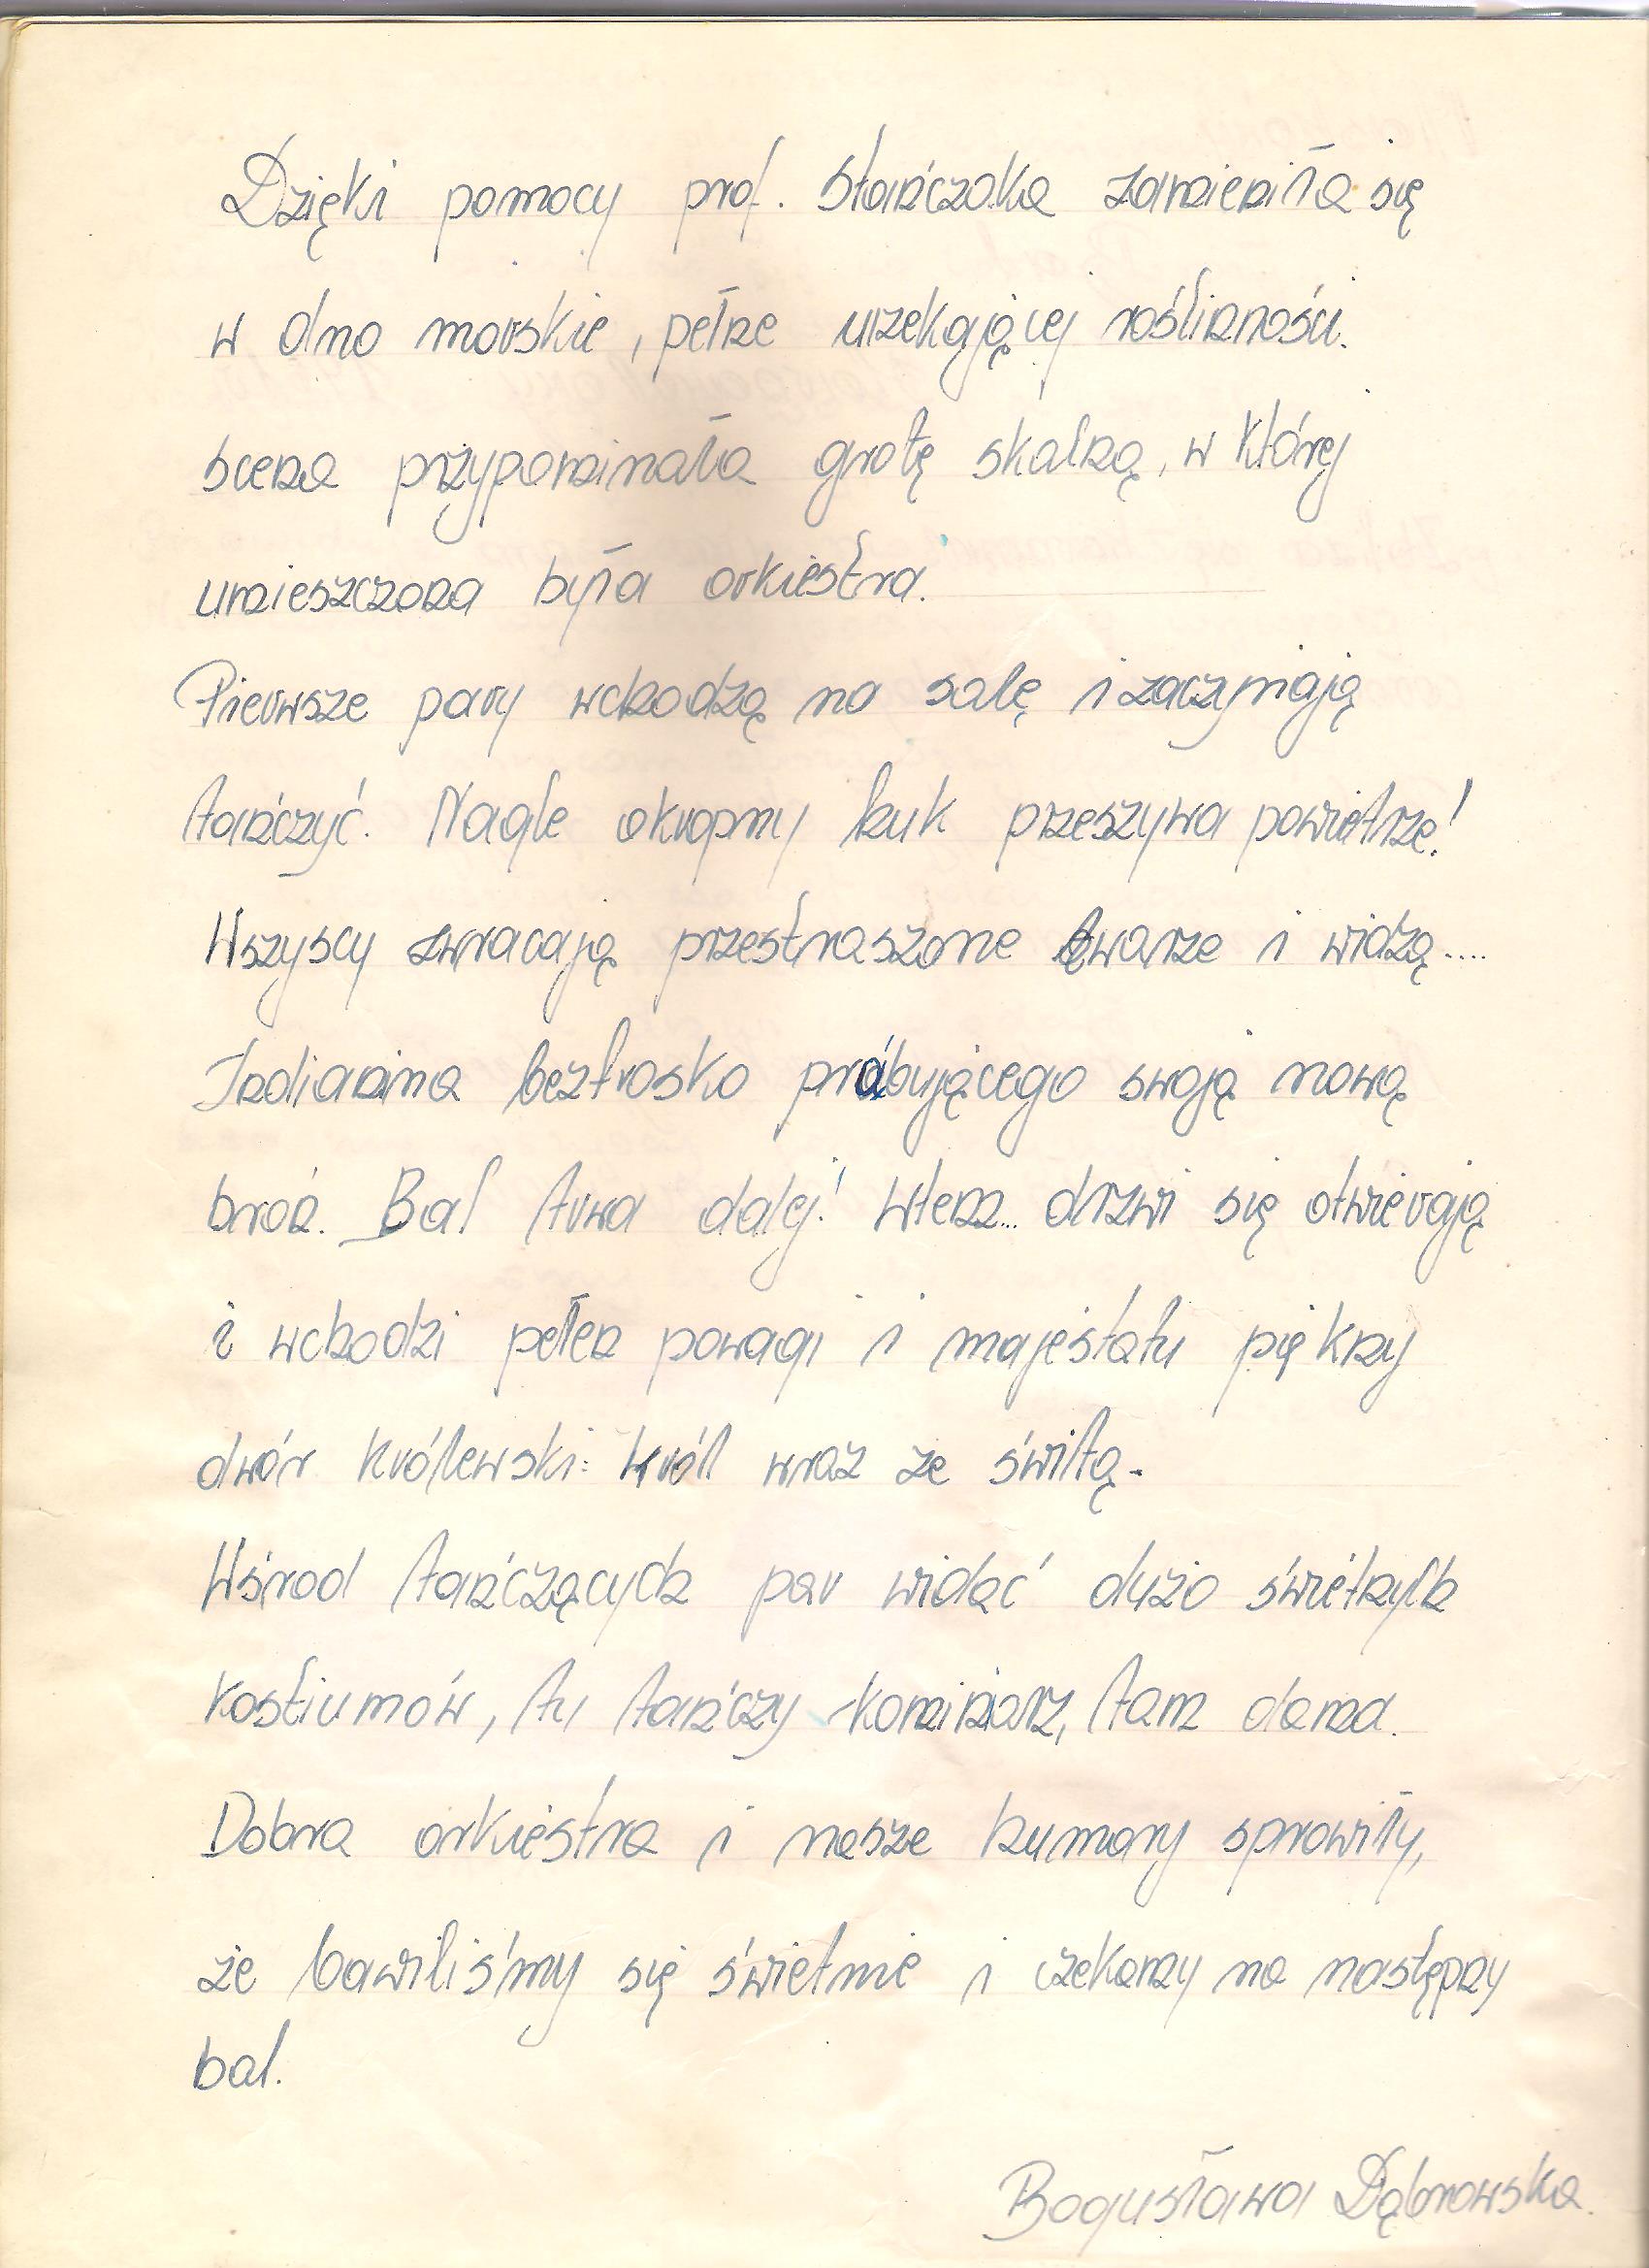 Dzięki pomocy prof. Stańczaka zamieniła się
w dno morskie, pełne urzekającej roślinności.
Scena przypominała grotę skalną, w której
umieszczona była orkiestra.
Pierwsze pary wchodzą na salę i zaczynają
tańczyć. Nagle okropny huk przeszywa powietrze!
Wszyscy zwracają przestraszone twarze i widzą....
Indianina beztrosko próbującego swoją nową
broń. Bal trwa dalej! Wtem... drzwi się otwierają
i wchodzi pełen powagi i majestatu piękny
dwór królewski: król wraz ze świtą.
Wśrod tańczących par widać dużo świetnych
kostiumów, tu tańczy kominiarz, tam dama.
Dobra orkiestra i nasze humory sprawiły,
że bawiliśmy się świetnie i czekamy na następny
bal.
Bogusława Dąbrowska.